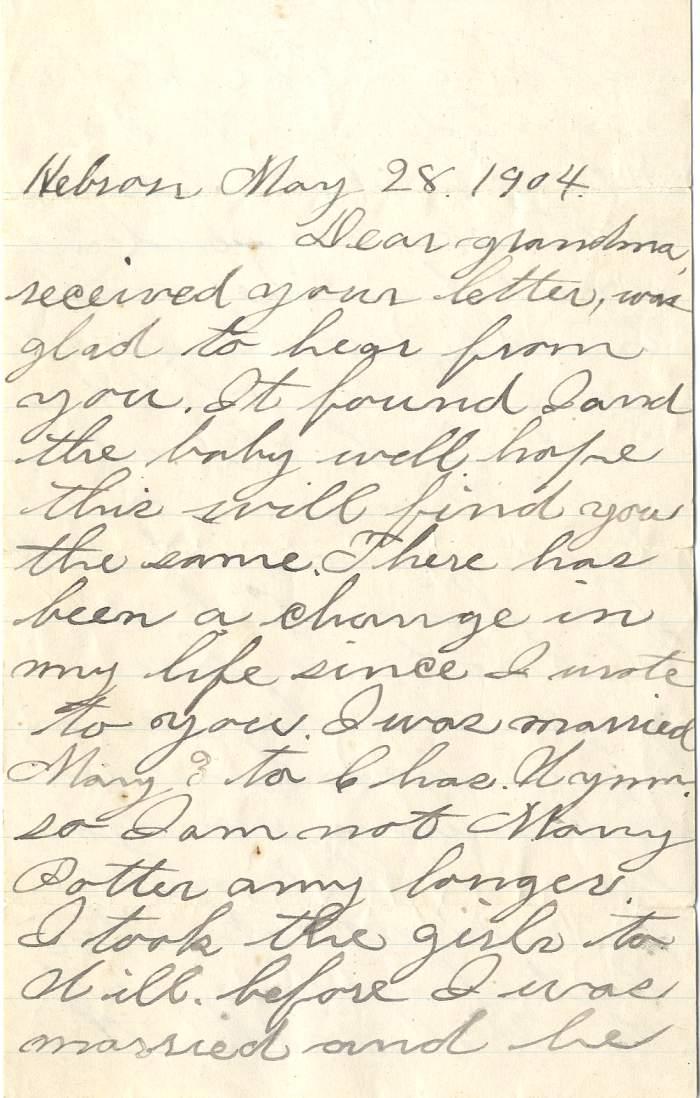 Hebron May 28. 1904.
Dear grandma,
received your letter, was
glad to hear from
you. It found I and
the baby well, hope
this will find you
the same. There has
been a change in
my life since I wrote
to you. I was married
May 3 to Chas. Wynn.
so I am not Mary
Potter any longer.
I took the girls to
Will. before I was
married and he